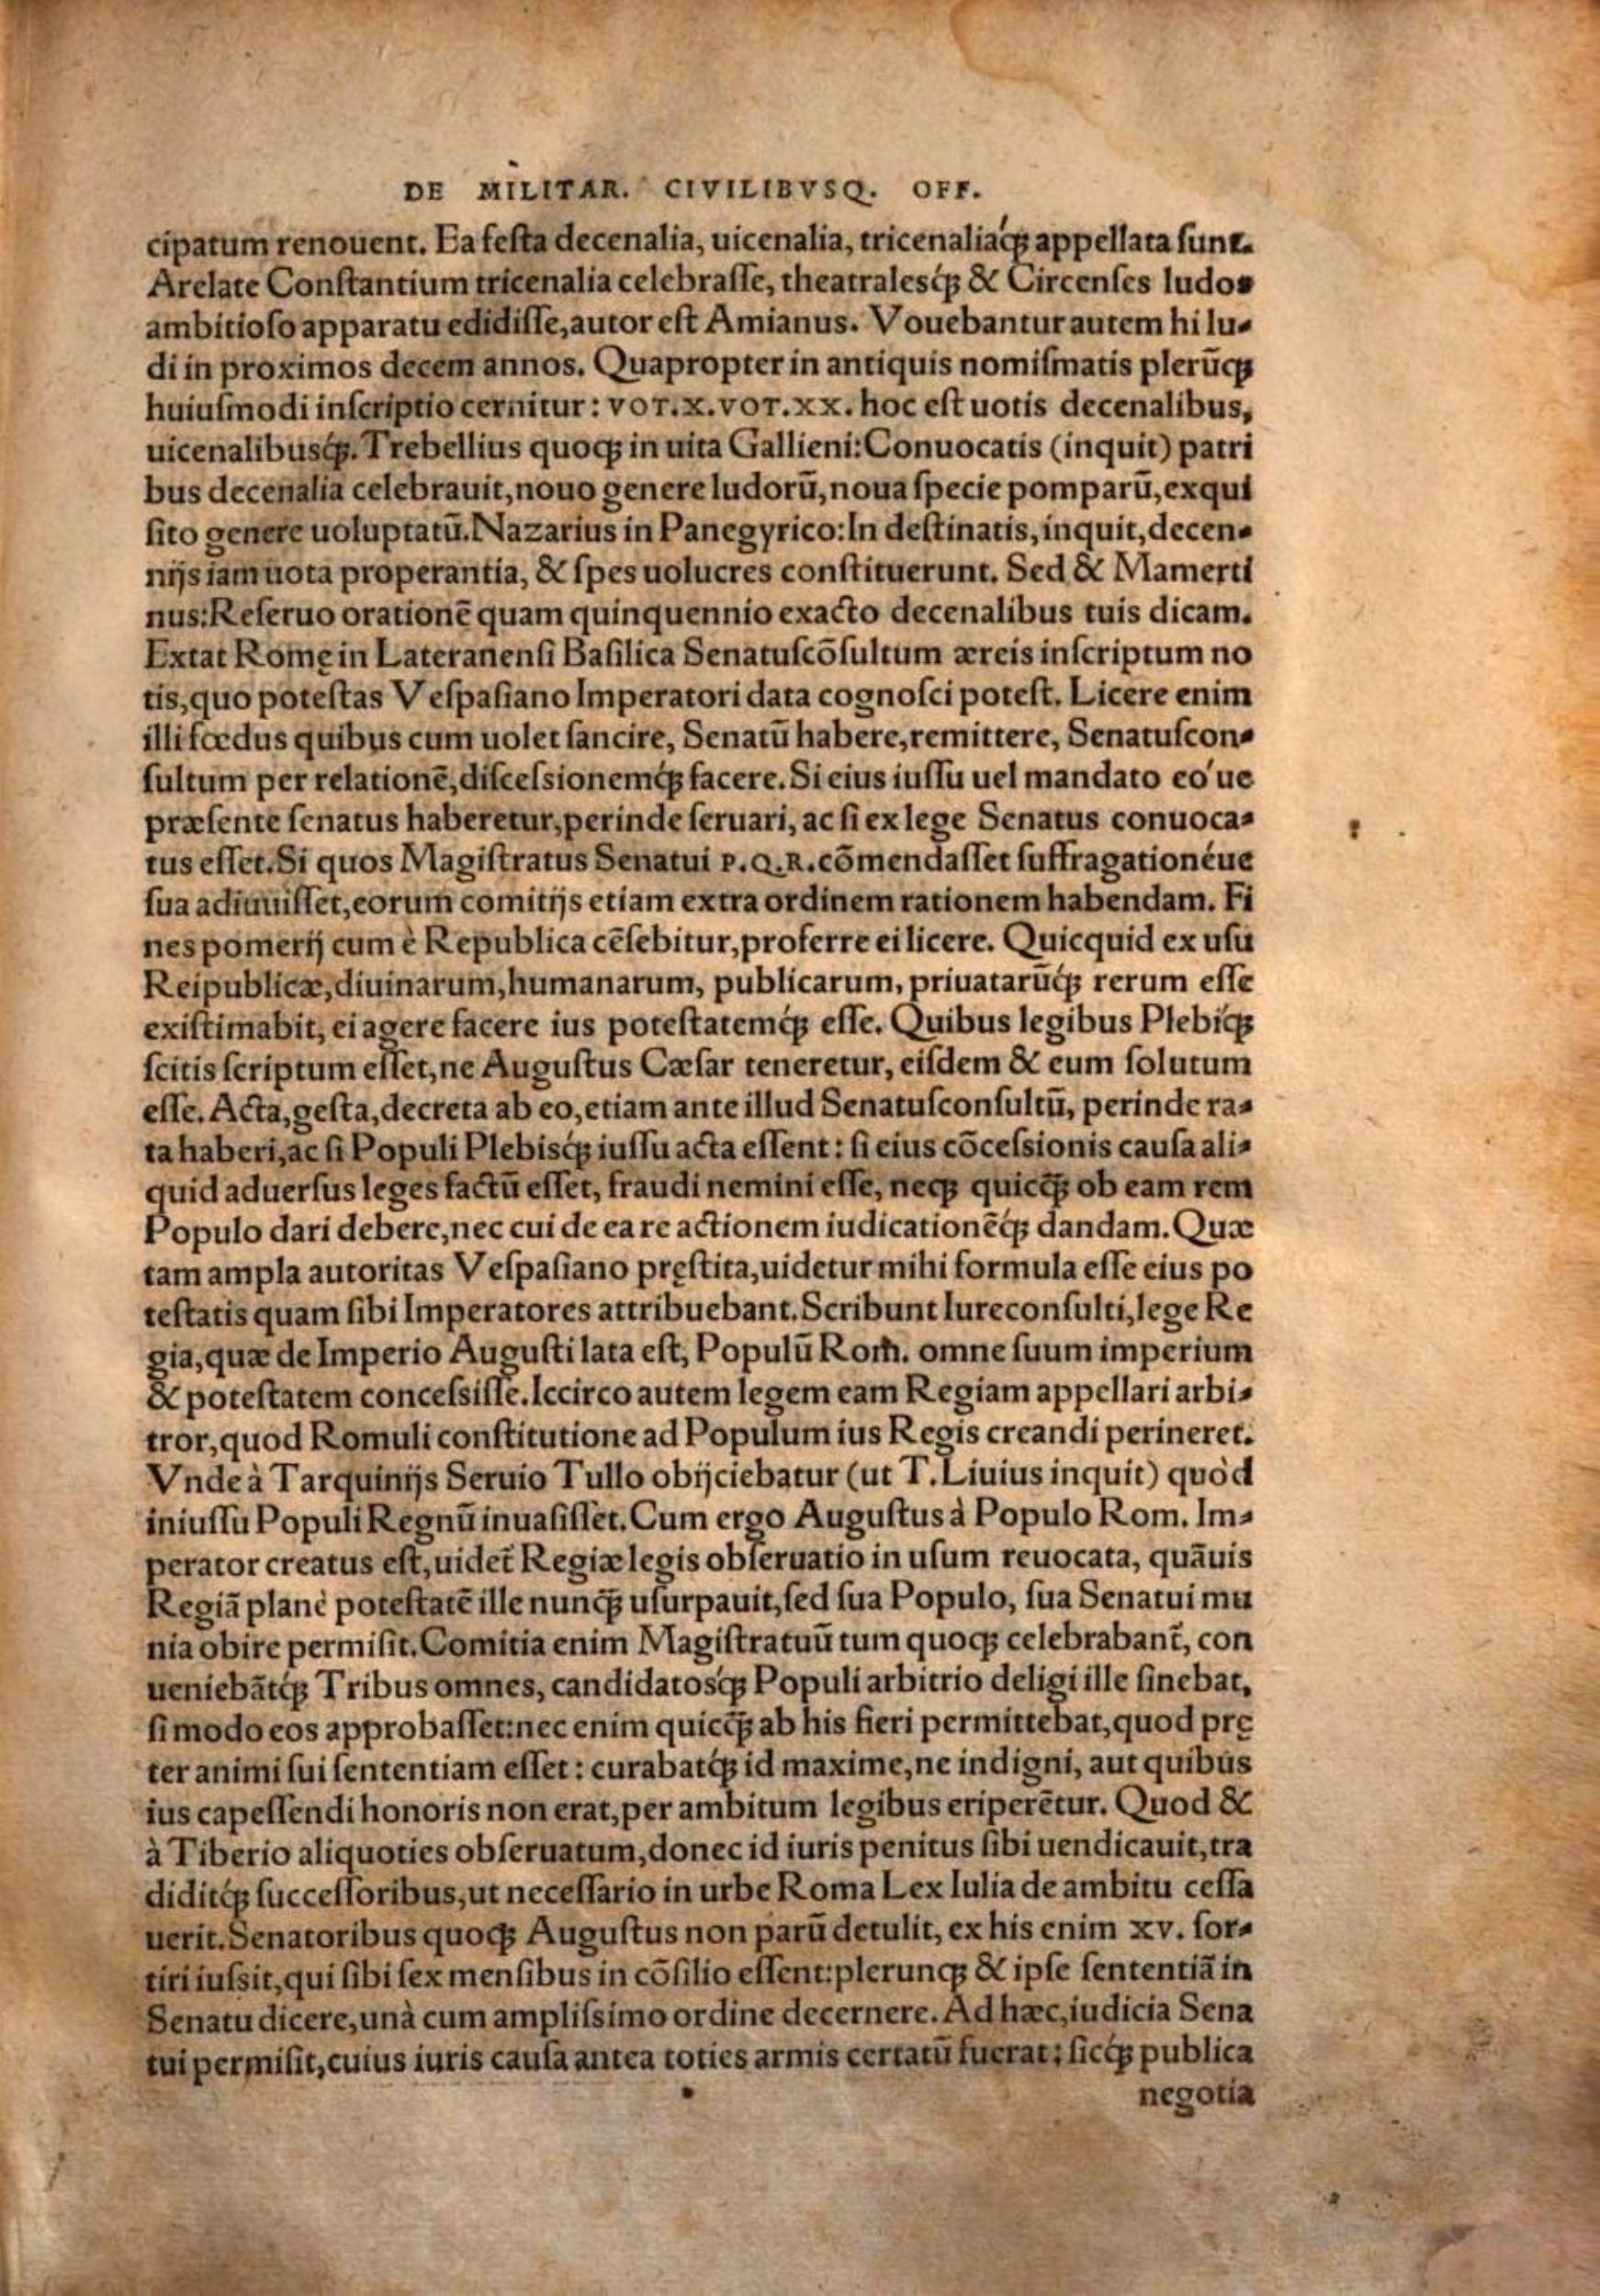 DE MILITAR. CIVILIBVSQ. OFF.
cipatum renouent. Ea festa decenalia, uicenalia, tricenaliaq́ꝫ appellata sunt.
Arelate Constantium tricenalia celebrasse, theatralesq́ꝫ & Circenses ludos
ambitioso apparatu edidisse, autor est Amianus. Vouebantur autem hi lu-
di in proximos decem annos. Quapropter in antiquis nomismatis plerūqꝫ
huiusmodi inscriptio cernitur: VOT.X.VOT.XX. hoc est uotis decenalibus,
uicenalibusq́ꝫ. Trebellius quoqꝫ in uita Gallieni: Conuocatis (inquit) patri
bus decenalia celebrauit, nouo genere ludorū, noua specie pomparū, exqui
sito genere uoluptatū. Nazarius in Panegyrico: In destinatis, inquit, decen-
nijs iam uota properantia, & spes uolucres constituerunt. Sed & Mamerti
nus: Reseruo orationē quam quinquennio exacto decenalibus tuis dicam.
Extat Romę in Lateranensi Basilica Senatuscōsultum æreis inscriptum no
tis, quo potestas Vespasiano Imperatori data cognosci potest. Licere enim
illi fœdus quibus cum uolet sancire, Senatū habere, remittere, Senatuscon-
sultum per relationē, discessionemq́ꝫ facere. Si eius iussu uel mandato eo'ue
præsente senatus haberetur, perinde seruari, ac si ex lege Senatus conuoca-
tus esset. Si quos Magistratus Senatui P.Q.R. cōmendasset suffragationéue
sua adiuuisset, eorum comitijs etiam extra ordinem rationem habendam. Fi
nes pomerij cum è Republica cēsebitur, proferre ei licere. Quicquid ex usu
Reipublicæ, diuinarum, humanarum, publicarum, priuatarūq́ꝫ rerum esse
existimabit, ei agere facere ius potestatemq́ꝫ esse. Quibus legibus Plebiq́ꝫ
scitis scriptum esset, ne Augustus Cæsar teneretur, eisdem & eum solutum
esse. Acta, gesta, decreta ab eo, etiam ante illud Senatusconsultū, perinde ra-
ta haberi, ac si Populi Plebisq́ꝫ iussu acta essent: si eius cōcessionis causa ali-
quid aduersus leges factū esset, fraudi nemini esse, neqꝫ quicq̄ꝫ ob eam rem
Populo dari debere, nec cui de ea re actionem iudicationēq́ꝫ dandam. Quæ
tam ampla autoritas Vespasiano pręstita, uidetur mihi formula esse eius po
testatis quam sibi Imperatores attribuebant. Scribunt Iureconsulti, lege Re
gia, quæ de Imperio Augusti lata est, Populū Rom̃. omne suum imperium
& potestatem concessisse. Iccirco autem legem eam Regiam appellari arbi-
tror, quod Romuli constitutione ad Populum ius Regis creandi perineret.
Vnde à Tarquinijs Seruio Tullo obijciebatur (ut T. Liuius inquit) quòd
iniussu Populi Regnū inuasisset. Cum ergo Augustus à Populo Rom. Im-
perator creatus est, uidet̃ Regiæ legis obseruatio in usum reuocata, quāuis
Regiā planè potestatē ille nunq̄ꝫ usurpauit, sed sua Populo, sua Senatui mu
nia obire permisit. Comitia enim Magistratuū tum quoqꝫ celebrabant̃, con
ueniebātq́ꝫ Tribus omnes, candidatosq́ꝫ Populi arbitrio deligi ille sinebat,
si modo eos approbasset: nec enim quicq̄ꝫ ab his fieri permittebat, quod prę
ter animi sui sententiam esset: curabatq́ꝫ id maxime, ne indigni, aut quibus
ius capessendi honoris non erat, per ambitum legibus eriperētur. Quod &
à Tiberio aliquoties obseruatum, donec id iuris penitus sibi uendicauit, tra
diditq́ꝫ successoribus, ut necessario in urbe Roma Lex Iulia de ambitu cessa
uerit. Senatoribus quoqꝫ Augustus non parū detulit, ex his enim XV. sor-
tiri iussit, qui sibi sex mensibus in cōsilio essent: plerunqꝫ & ipse sententiā in
Senatu dicere, unà cum amplissimo ordine decernere. Ad hæc, iudicia Sena
tui permisit, cuius iuris causa antea toties armis certatū fuerat: sicq́ꝫ publica
negotia